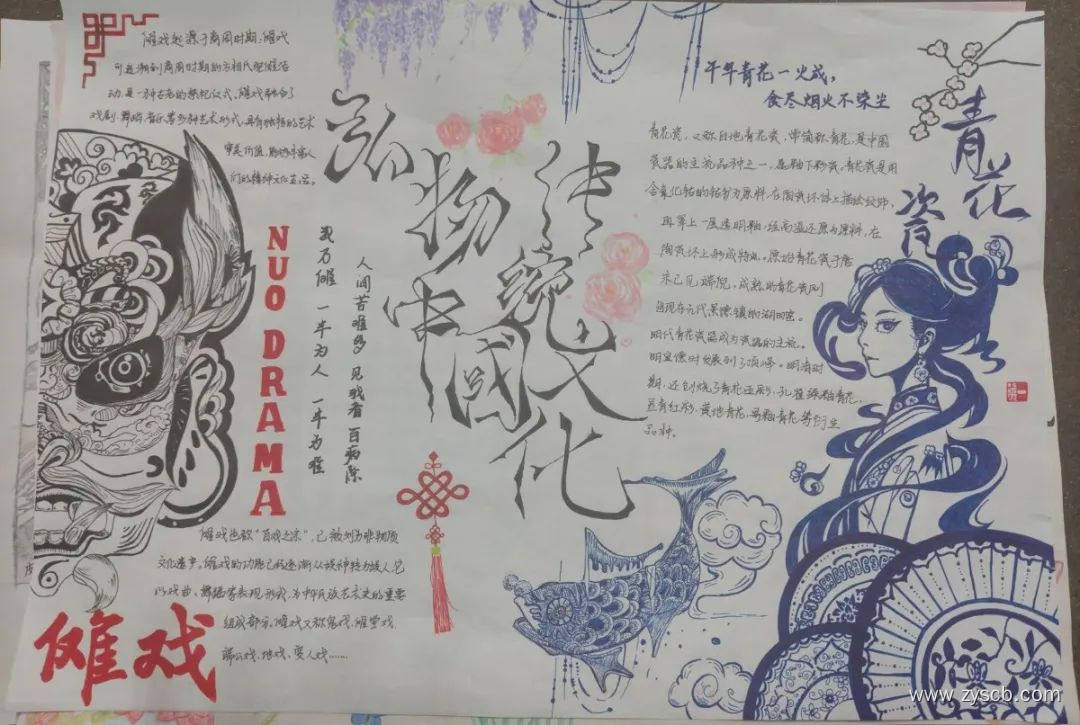 傩戏起源于商周时期，傩戏
可追溯到商周时期的方相氏驱傩活
动，是一种古老的祭祀仪式，傩戏融合了
戏剧、舞蹈、音乐等多种艺术形式，具有独特的艺术
审美价值，
们的精神文化生活。
NUO DRAMA
我乃傩 一半为人 一半为难
人间苦难多 见我者 百病除
傩戏也称“百戏之宗”，已被列为非物质
文化遗产，傩戏的功能已经逐渐从娱神转为娱人，它
以戏曲、舞蹈等表现形式，为中华民族艺术史的重要
组成部分。傩戏又称鬼戏、傩堂戏
端公戏、地戏、变人戏……
傩戏
弘扬中国
传统文化
千年青花一火成，
食尽烟火不染尘
青花瓷
青花瓷，又称白地青花瓷，常简称青花，是中国
瓷器的主流品种之一，属釉下彩瓷。青花瓷是用
含氧化钴的钴矿为原料，在陶瓷坯体上描绘纹饰，
再罩上一层透明釉，经高温还原为原料，在
陶瓷坯上形成特有。原始青花瓷于唐
宋已见端倪，成熟的青花瓷则
出现在元代景德镇的湖田窑。
明代青花瓷器成为瓷器的主流。
明宣德时发展到了顶峰。明清时
期，还创烧了青花五彩、孔雀绿釉青花，
豆青红彩，黄地青花，哥釉青花等衍生
品种。
www.zyscb.com